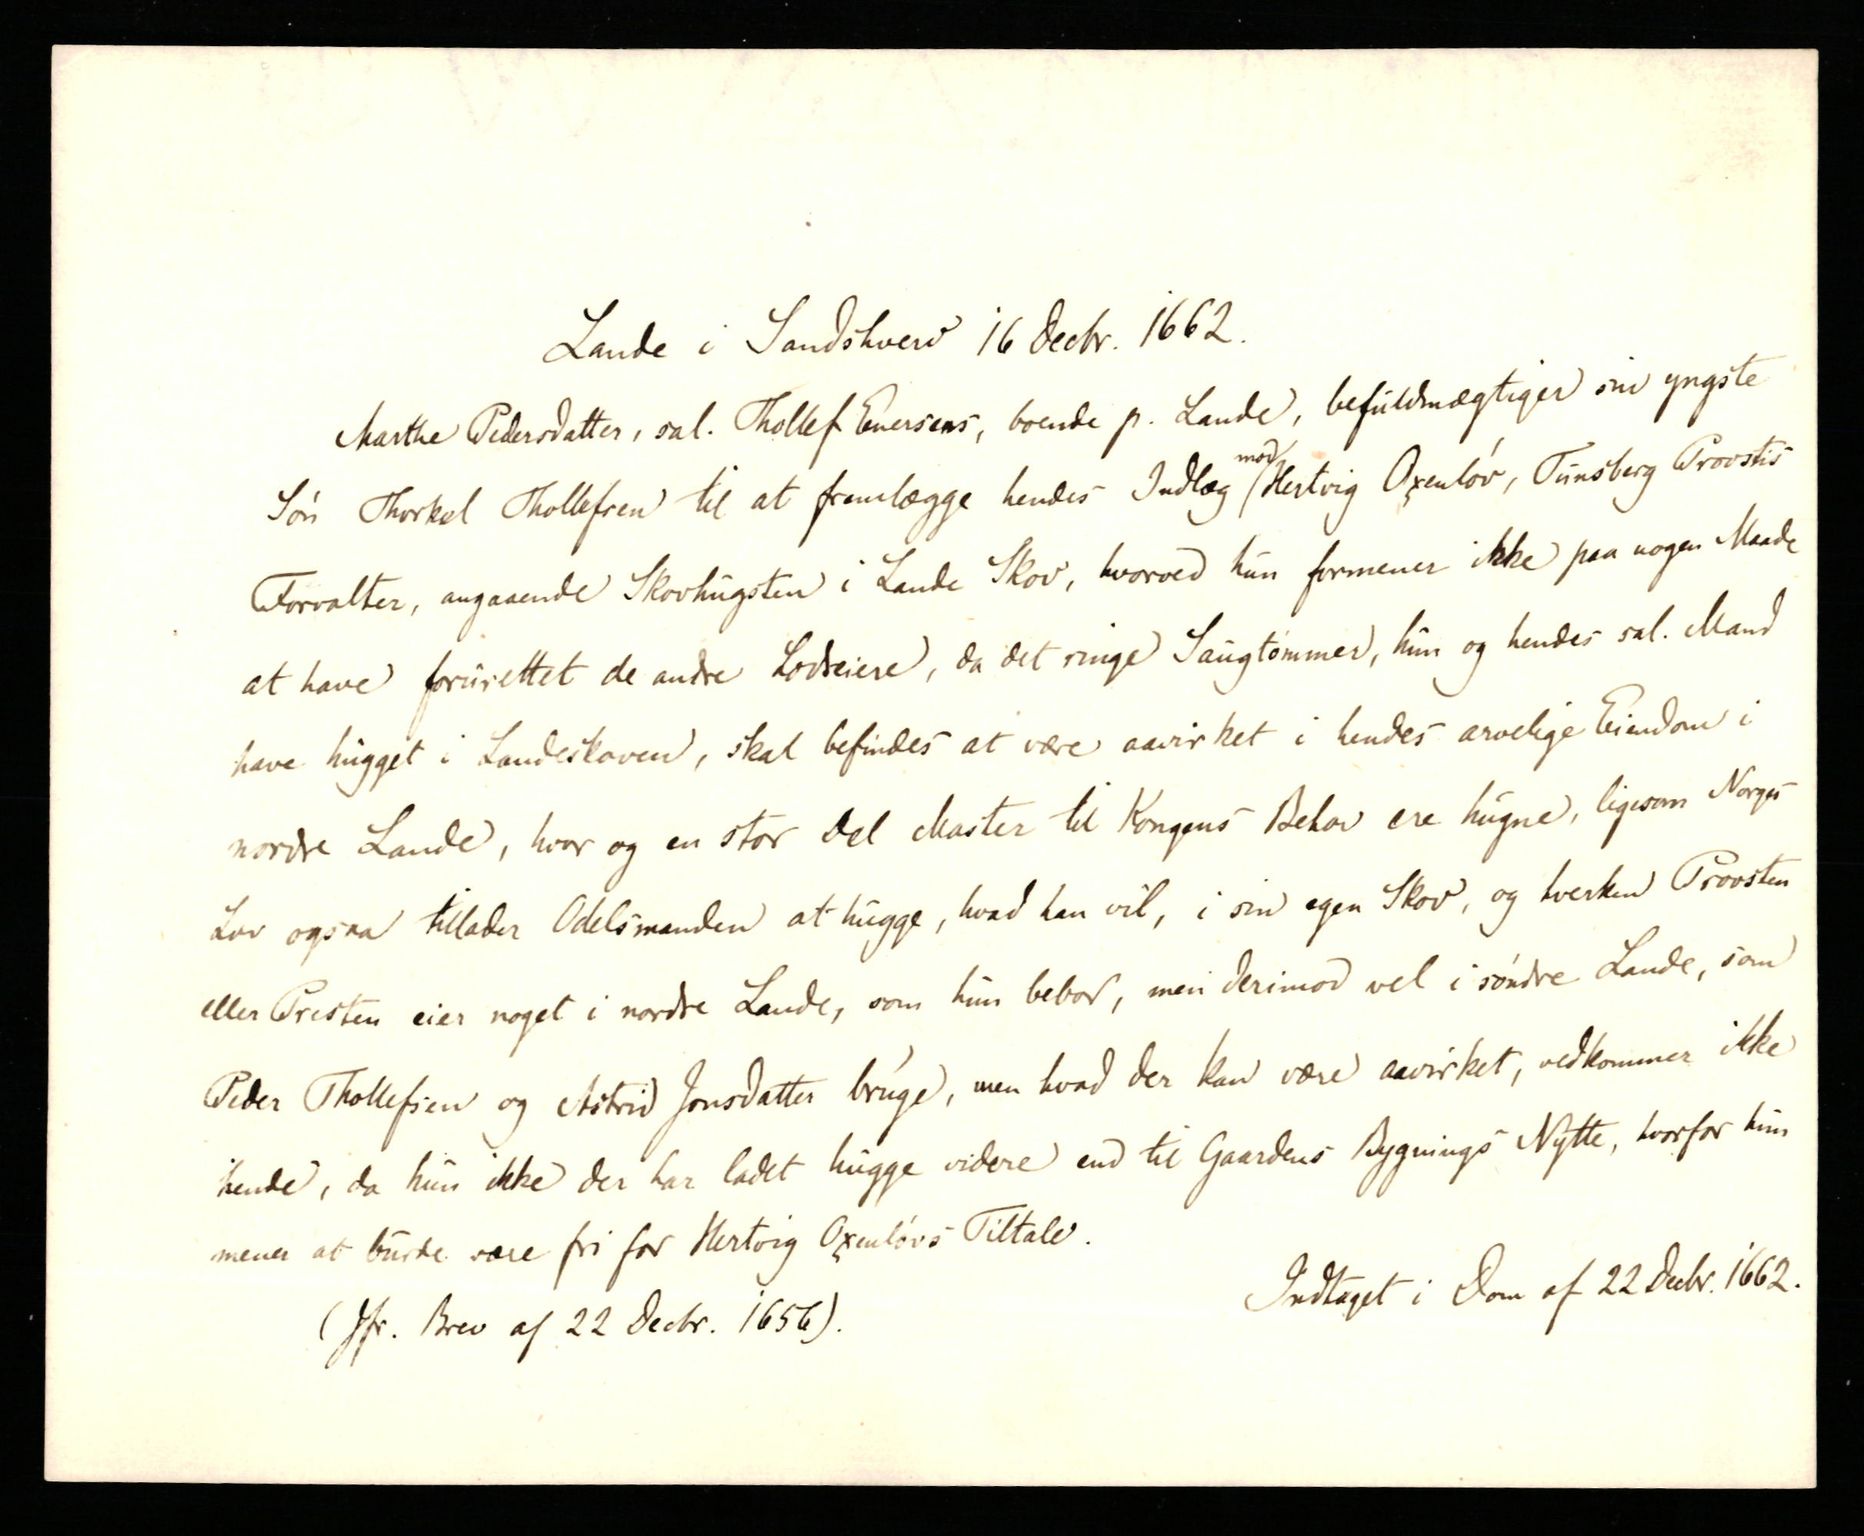 Lande i Sandshverv 16 Decbr. 1662.
Marthe Pedersdatter, sal. Thollef Enersens, boende p. Lande, befuldmægtiger sin yngste
Sön Thorkel Thollefsen til at fremlægge hendes Indlæg mod Hertvig Oxenlöv, Tunsberg Provstis
Forvalter, angaaende Skovhugsten i Lande Skov, hvorved hun formener ikke paa nogen Maade
at have forurettet de andre Lodseiere, da det ringe Saugtömmer, hun og hendes sal. Mand
have hugget i Landeskoven, skal befindes at være aavirket i hendes arvelige Eiendom i
nordre Lande, hvor og en stor Del Master til Kongens Behov ere hugne, ligesom Norges
Lov ogsaa tillader Odelsmanden at hugge, hvad han vil, i sin egen Skov, og hverken Provsten
eller Presten eier noget i nordre Lande, som hun bebor, men derimod vel i söndre Lande, som
Peder Thollefsen og Astrid Jonsdatter bruge, men hvad der kan være aavirket, vedkommer ikke
hende, da hun ikke der har ladet hugge videre end til Gaardens Bygnings Nytte, hvorfor hun
mener at burde være fri for Hertvig Oxenlövs Tiltale.
Indtaget i Dom af 22 Decbr. 1662.
(Jfr. Brev af 22 Decbr. 1656).